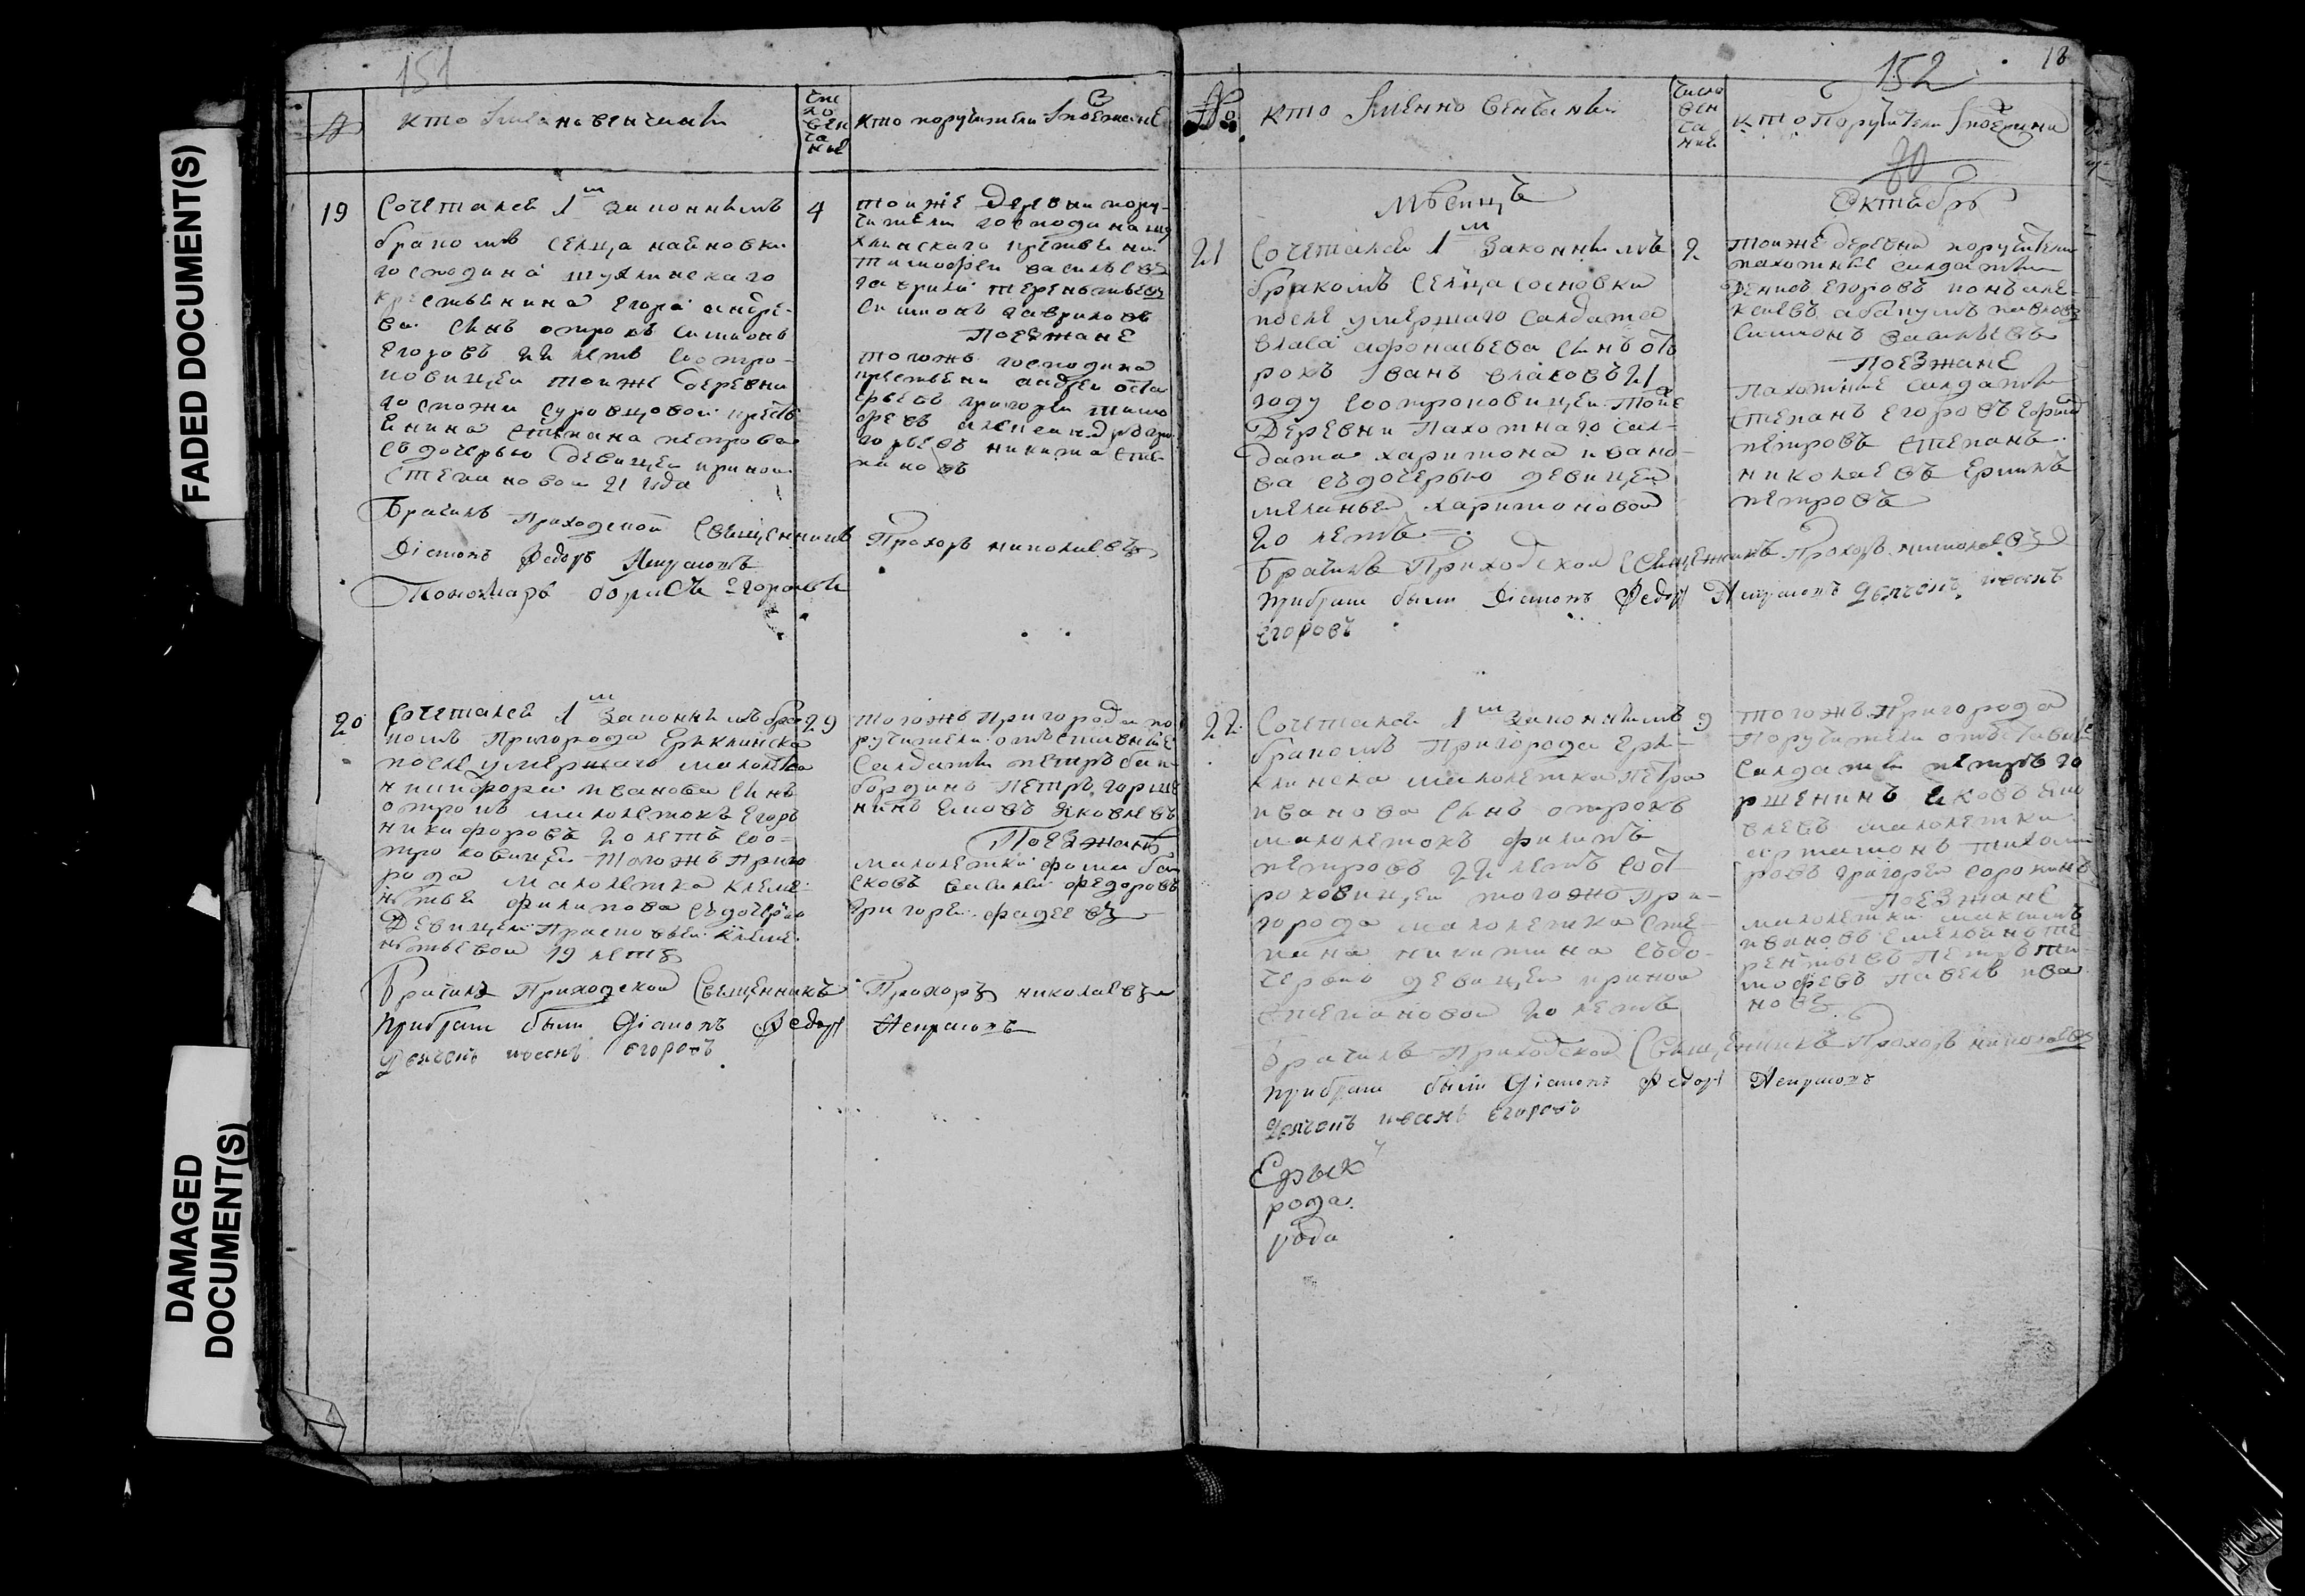 FADED DOCUMENT(S)
DAMAGED
DOCUMENT(S)
151
№
кто имено венчаны
чис
ло
вен
ча
ние
кто поручители и поезжане
19
Сочетался 1м законнымъ
бракомъ селца
господина
крестьянина Егора андре-
ева сынъ отрокъ симионъ
Егоровъ 22 летъ соотро-
ковицеи тоиже деревни
госпожи суровцовои кресть
янина степана петрова
съ дочерью девицеи ириною
степановои 21 года
4
тоиже деревни пору-
чители господина
крестьяни
тимофеи васильевъ
гаврила терентьевъ
симионъ гавриловъ
Поезжане
тогожъ господина
крестьяни андреи
григореи тимо
феевъ александръ
никита сте
пановъ
Врачилъ Приходской Священникъ Прохоръ николаевъ
Dіаконъ Федоръ Некрасовъ
Пономарь борисъ Егоровъ
20
Сочетался 1м законнымъ бра
комъ Пригорода Ерыклинска
после умершаго малолетка
никифора иванова сынъ
отрокъ малолетокъ Егоръ
никифоровъ 20 летъ соо-
троковицеи тогожъ приго
рода малолетка Клеме-
нтьея филипова съдочерью
Девицеи Прасковьеи клеме-
нтьевои 19 летъ
29
тогожъ Пригорода по
ручители отъставные
салдаты петръ
бородинъ Петръ горше
нинъ Яковлевъ
Поезжане
малолетки фома
василеи федоровъ
Григореи фадеевъ
Врачилъ Приходской Священникъ Прохоръ николаевъ
прибраке были Dіаконъ Федоръ Некрасовъ
Дьячекъ иванъ егоровъ
152
18
№
кто имЕнно венчаны
число
вен
ча
ние
кто Поручители и поезжане
мѣсицъ
Октябрь
21
Сочетался 1м Законнымъ
бракомъ Селца Сосновки
после умершаго салдата
власа афонасьева сынъ от
рокъ Иванъ власовъ 21
году соотроковицеи тоие
Деревни Пахотнаго сал-
дата харитона ивано-
ва съдочерью девицеи
меланьеи харитоновои
20 летъ
2
тоиже деревни поручители
пахотные салдаты
Денисъ Егоровъ
абакумъ павловъ
симионъ васильевъ
Поезжане
Пахотные салдаты
степанъ Егоровъ
петровъ степанъ
николаевъ
петровъ
Врачилъ Приходской Священникъ Прохоръ николаевъ
прибраке были Dіаконъ Федоръ Некрасовъ Дьячекъ иванъ
егоровъ
22
Сочетался 1м законнымъ
бракомъ Пригорода Еры-
клинска малолетка петра
иванова сынъ отрокъ
малолетокъ филипъ
петровъ 22 летъ соот
роковицеи тогожъ При-
города малолетка сте-
пана никитина съдо-
черью девицеи ириною
степановои 20 летъ
9
тогожъ Пригорода
Поручители отъставны
салдаты петръ го
ршенинъ яковъ
малолетки
артамонъ тихоми
ровъ григореи сорокинъ
Поезжане
малолетки максимъ
ивановъ те-
рентьевъ Петръ ти-
мофеевъ павелъ ива
новъ
Врачилъ Приходской Священникъ Прохоръ николаевъ
прибраке были Dіаконъ Федоръ Некрасовъ
Дьячекъ иванъ егоровъ
Ерык
рода
рода